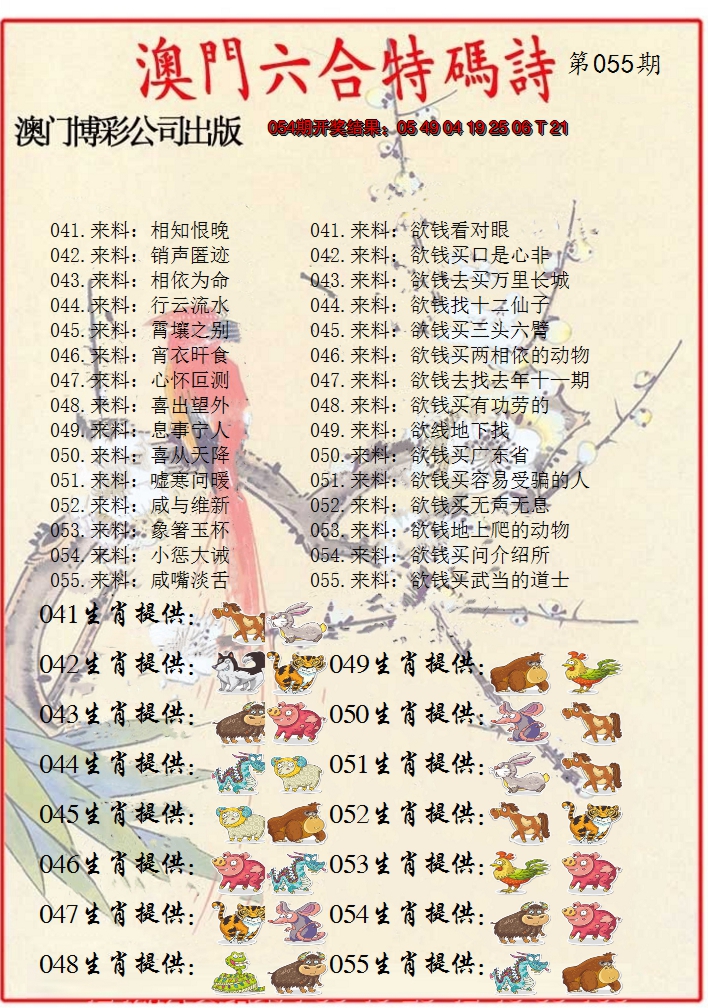 澳門六合特碼詩 第055期
澳门博彩公司出版 054期开奖结果：05 49 04 19 25 06 T 21
041.来料：相知恨晚 041.来料：欲钱看对眼
042.来料：销声匿迹 042.来料：欲钱买口是心非
043.来料：相依为命 043.来料：欲钱去买万里长城
044.来料：行云流水 044.来料：欲钱找十二仙子
045.来料：霄壤之别 045.来料：欲钱买三头六臂
046.来料：宵衣旰食 046.来料：欲钱买两相依的动物
047.来料：心怀叵测 047.来料：欲钱去找去年十一期
048.来料：喜出望外 048.来料：欲钱买有功劳的
049.来料：息事宁人 049.来料：欲线地下找
050.来料：喜从天降 050.来料：欲钱买广东省
051.来料：嘘寒问暖 051.来料：欲钱买容易受骗的人
052.来料：咸与维新 052.来料：欲钱买无声无息
053.来料：象箸玉杯 053.来料：欲钱地上爬的动物
054.来料：小惩大诫 054.来料：欲钱买问介绍所
055.来料：咸嘴淡舌 055.来料：欲钱买武当的道士
041生肖提供：
042生肖提供： 049生肖提供：
043生肖提供： 050生肖提供：
044生肖提供： 051生肖提供：
045生肖提供： 052生肖提供：
046生肖提供： 053生肖提供：
047生肖提供： 054生肖提供：
048生肖提供： 055生肖提供：